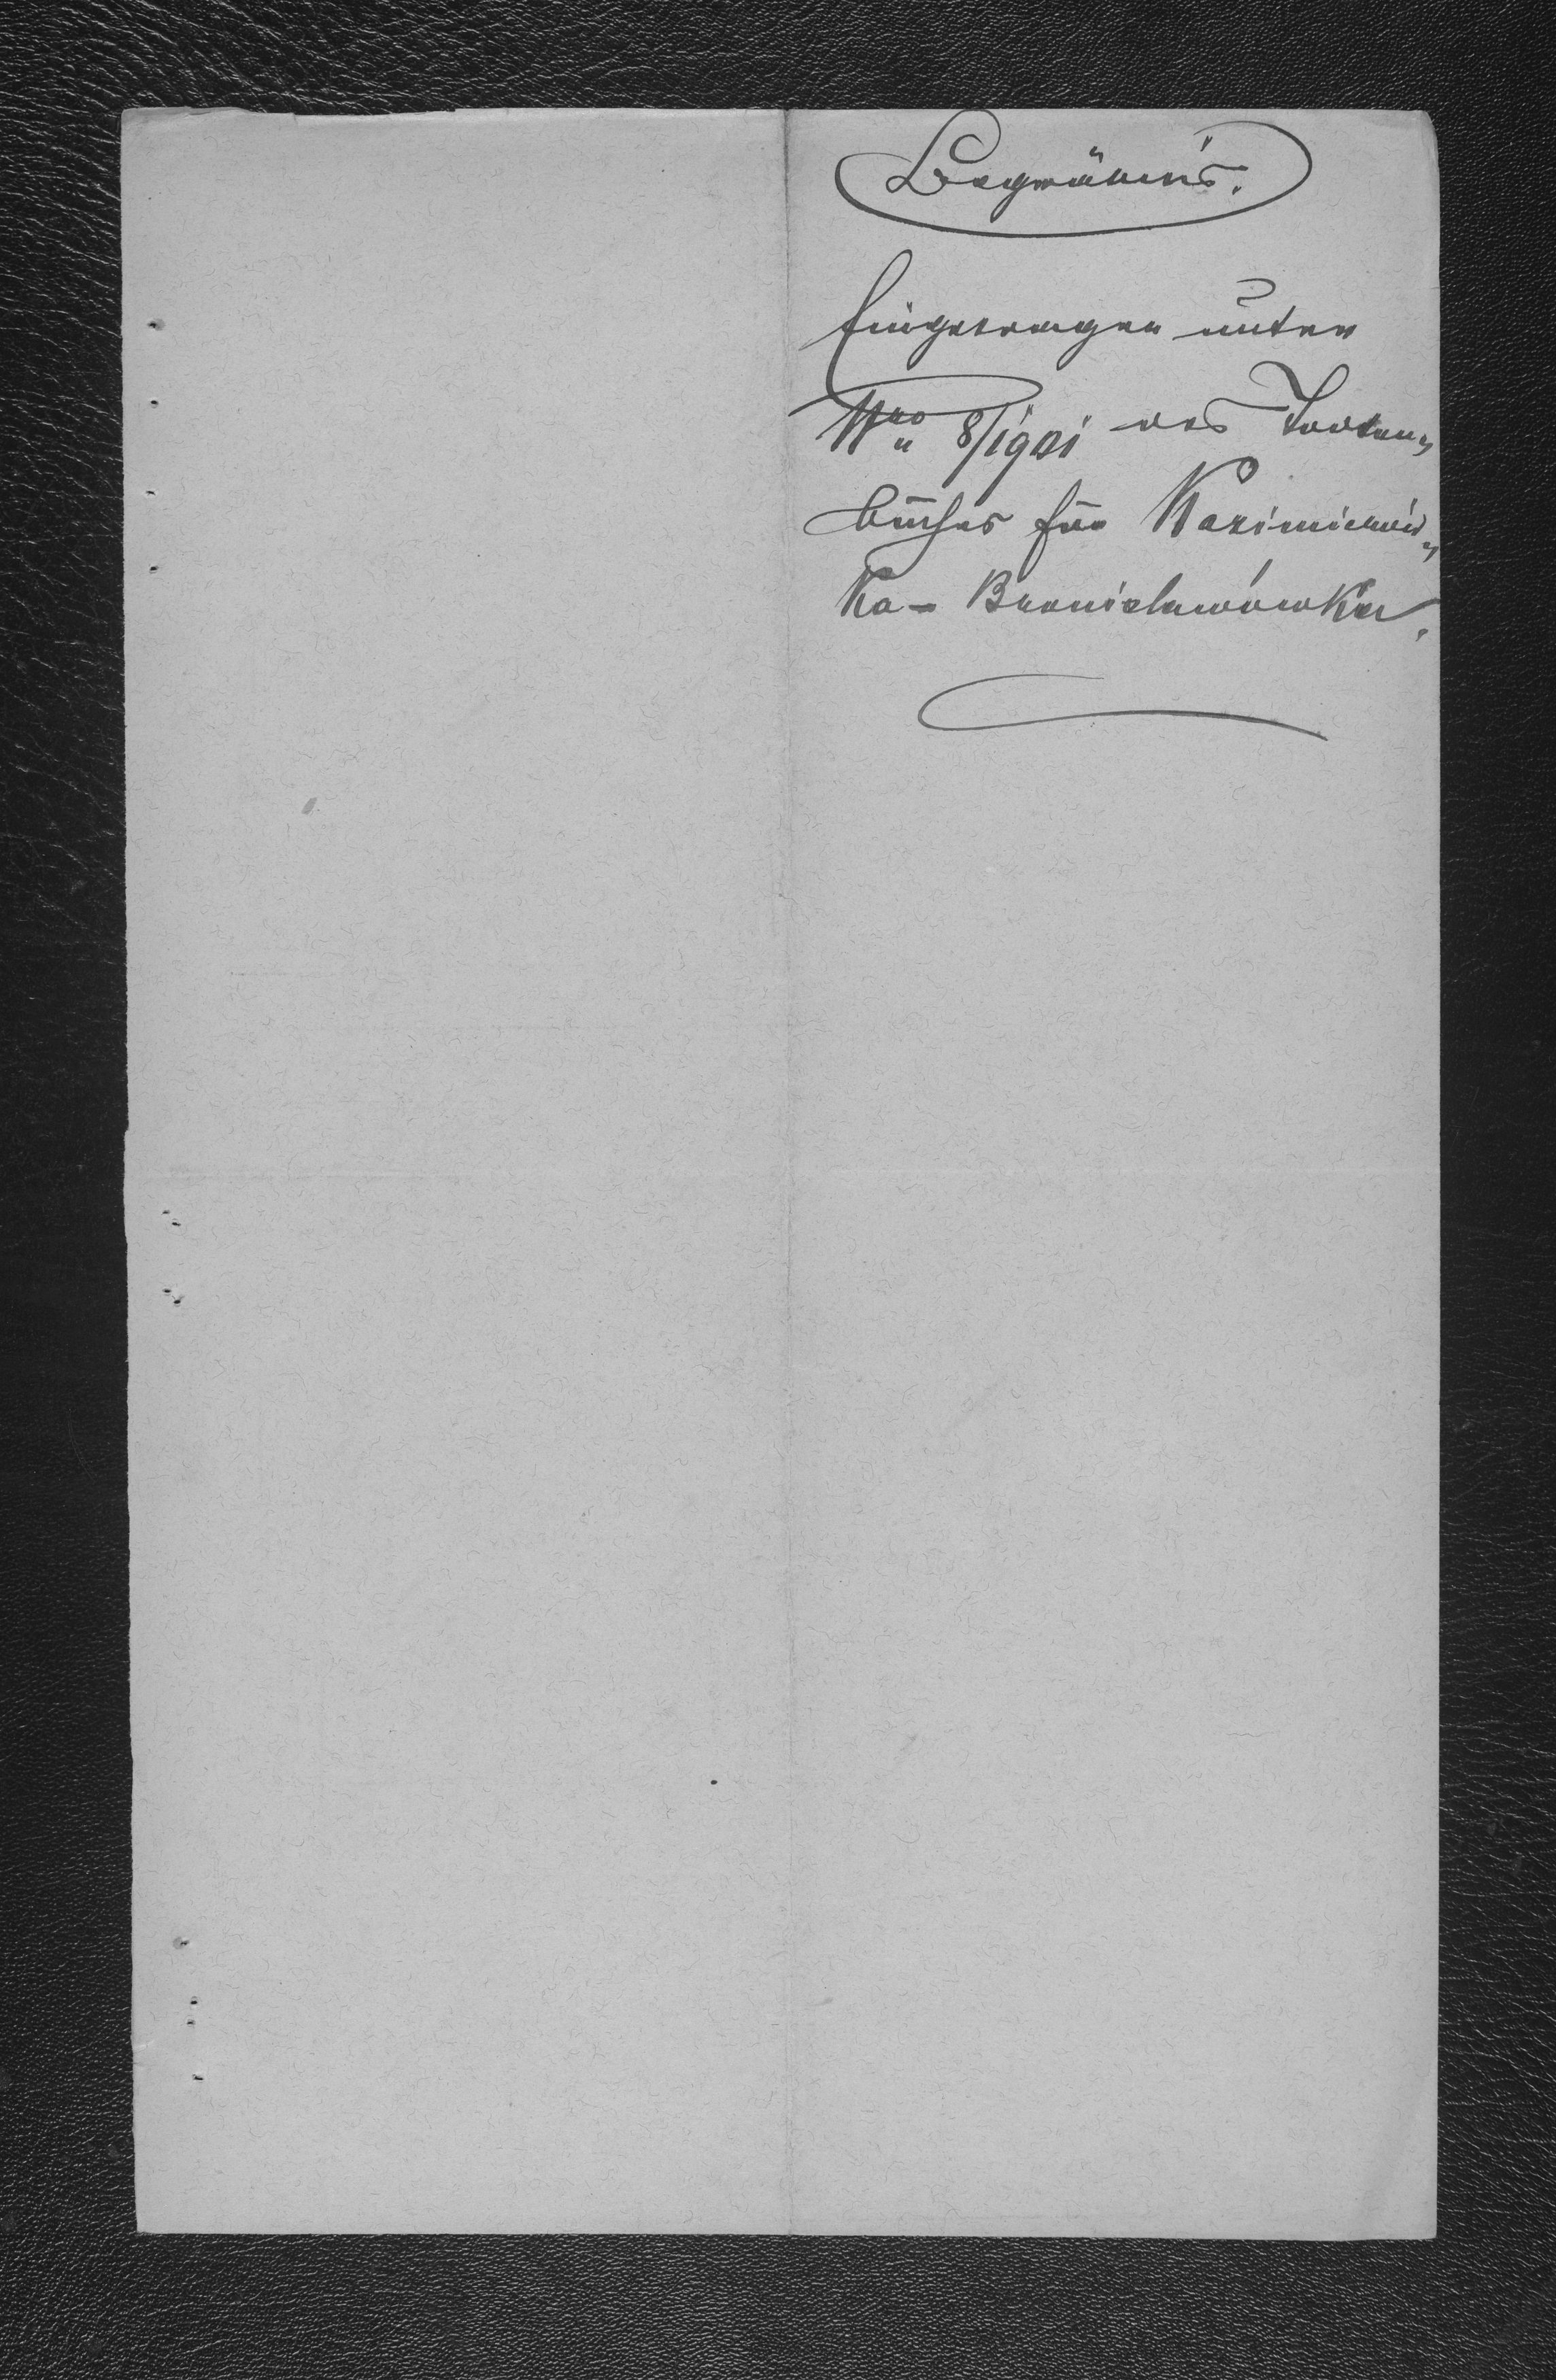 Begräbnis.
Eingetragen unter
Nro 8/1901 des Todten„
buches für Kazimierów„
ka - Bronislawówka.